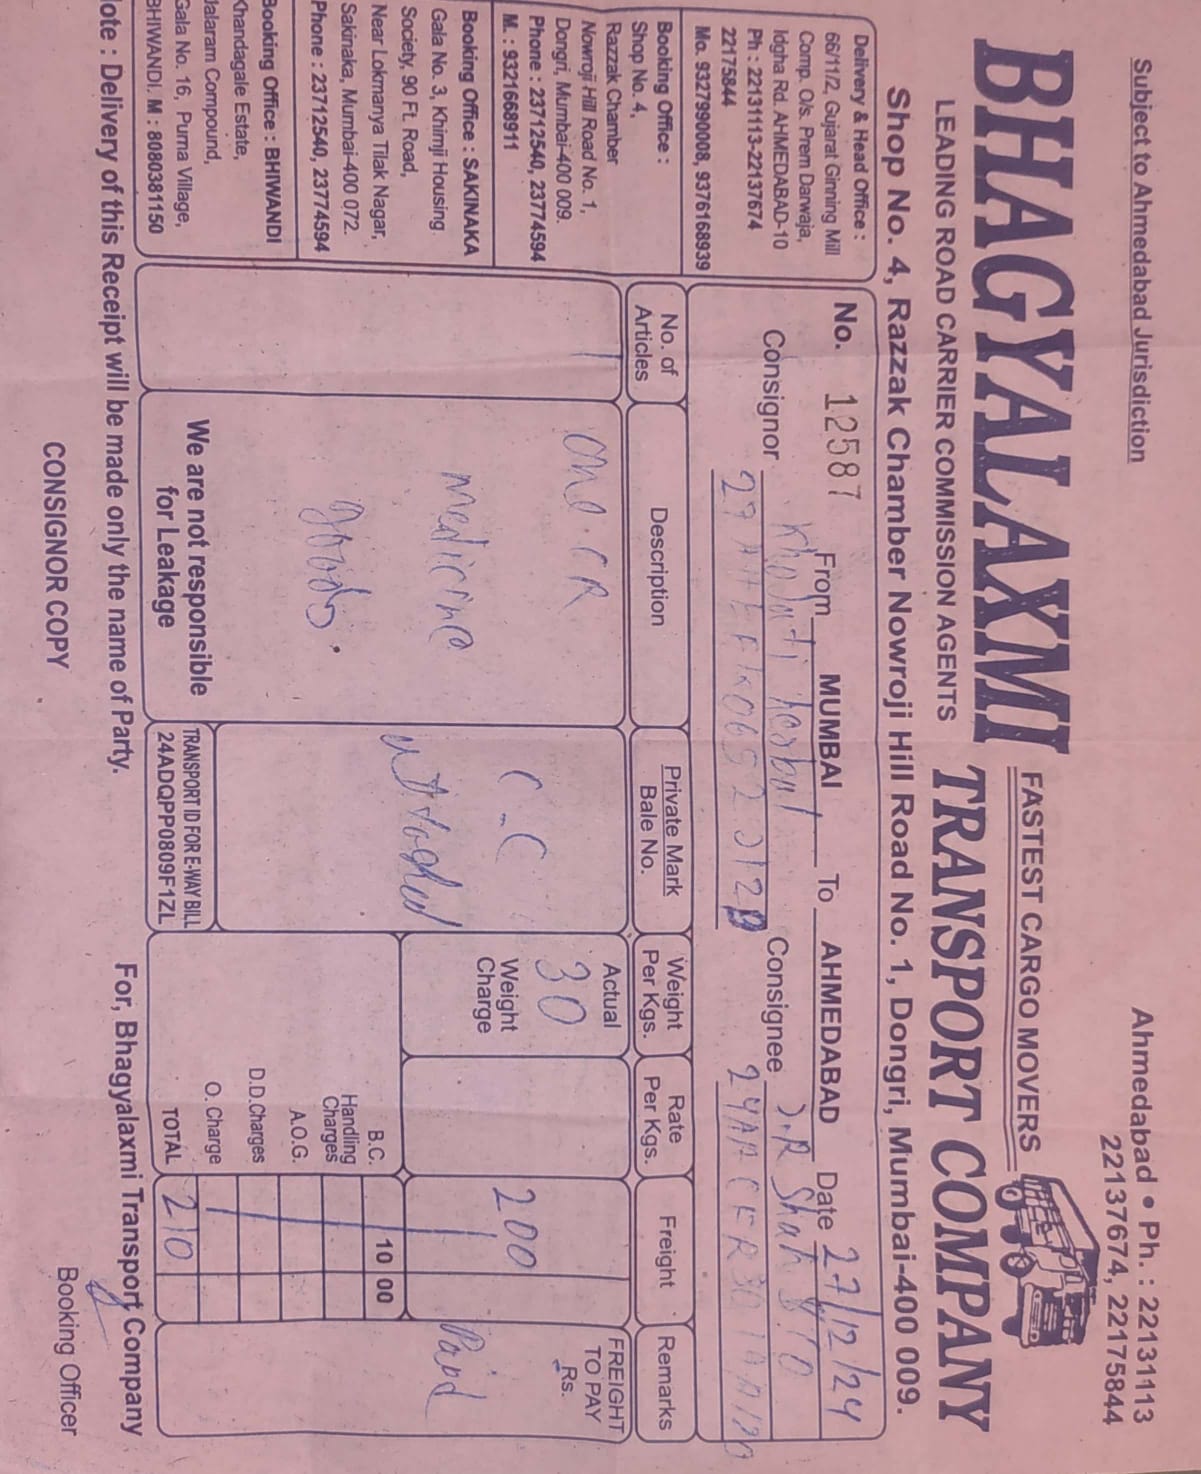 Subject to Ahmedabad Jurisdiction
Ahmedabad • Ph. : 22131113
22137674, 22175844
BHAGYALAXMI
FASTEST CARGO MOVERS
TRANSPORT COMPANY
LEADING ROAD CARRIER COMMISSION AGENTS
Shop No. 4, Razzak Chamber Nowroji Hill Road No. 1, Dongri, Mumbai-400 009.
Delivery & Head Office :
66/11/2, Gujarat Ginning Mill
Comp. O/s. Prem Darwaja,
Idgha Rd. AHMEDABAD-10
Ph : 22131113-22137674
22175844
Mo. 9327990008, 9376168939
Booking Office :
Shop No. 4,
Razzak Chamber
Nowroji Hill Road No. 1,
Dongri, Mumbai-400 009.
Phone : 23712540, 23774594
M. : 9321668911
Booking Office : SAKINAKA
Gala No. 3, Khimji Housing
Society, 90 Ft. Road,
Near Lokmanya Tilak Nagar,
Sakinaka, Mumbai-400 072.
Phone : 23712540, 23774594
Booking Office : BHIWANDI
Khandagale Estate,
Jalaram Compound,
Gala No. 16, Purna Village,
BHIWANDI. M : 8080381150
No. 12587 From MUMBAI To AHMEDABAD Date 27/12/24
Consignor herbal
Consignee J.R Shah
No. of Articles
Description
Private Mark
Bale No.
Weight Per Kgs.
Rate Per Kgs.
Freight
Remarks
1
one
medicine
goods
C.C
Actual
30
Weight Charge
200
FREIGHT
TO PAY
Rs.
Paid
B.C. 10 00
Handling Charges
A.O.G.
D.D.Charges
O. Charge
TOTAL 210
We are not responsible
for Leakage
TRANSPORT ID FOR E-WAY BILL
24ADQPP0809F1ZL
Note : Delivery of this Receipt will be made only the name of Party.
For, Bhagyalaxmi Transport Company
CONSIGNOR COPY
Booking Officer